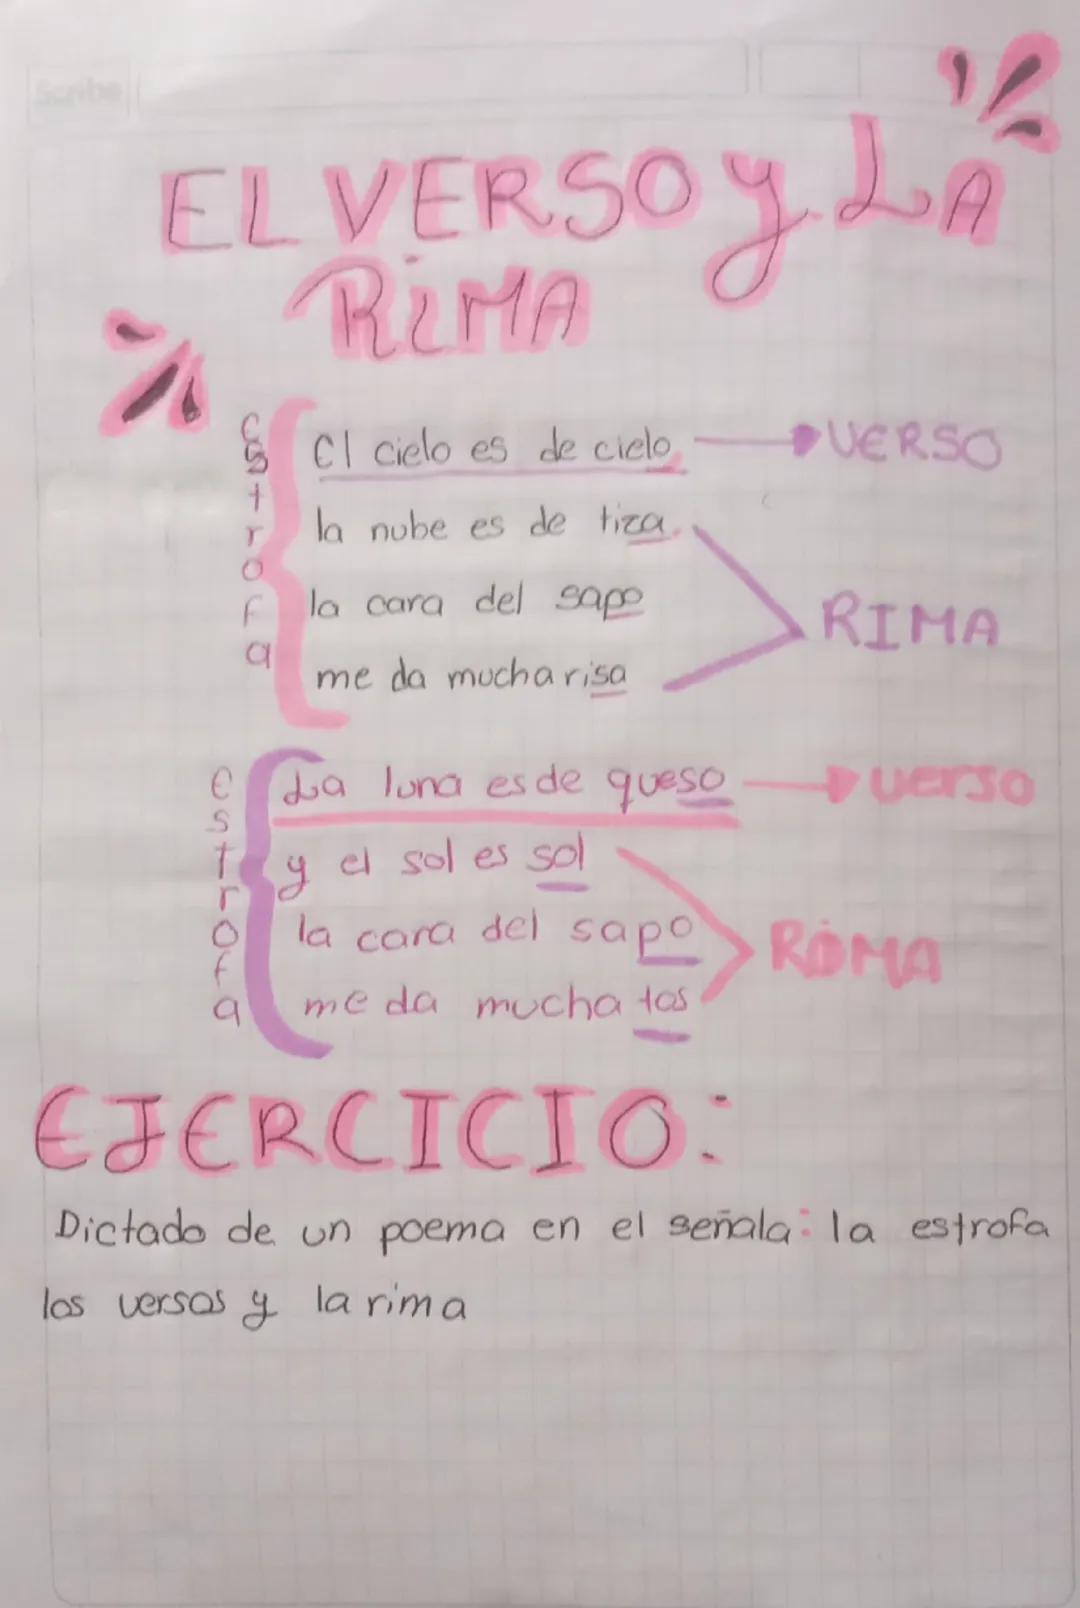 Scribe
EL VERSO y LA
RiMA
Estrofa
El cielo es de cielo VERSO
la nube es de tiza
la cara del sapo RIMA
me da mucha risa
estrofa
La luna es de queso verso
y el sol es sol
la cara del sapo RiMA
me da mucha tos
EJERCICIO:
Dictado de un poema en el señala: la estrofa
los versos y la rima